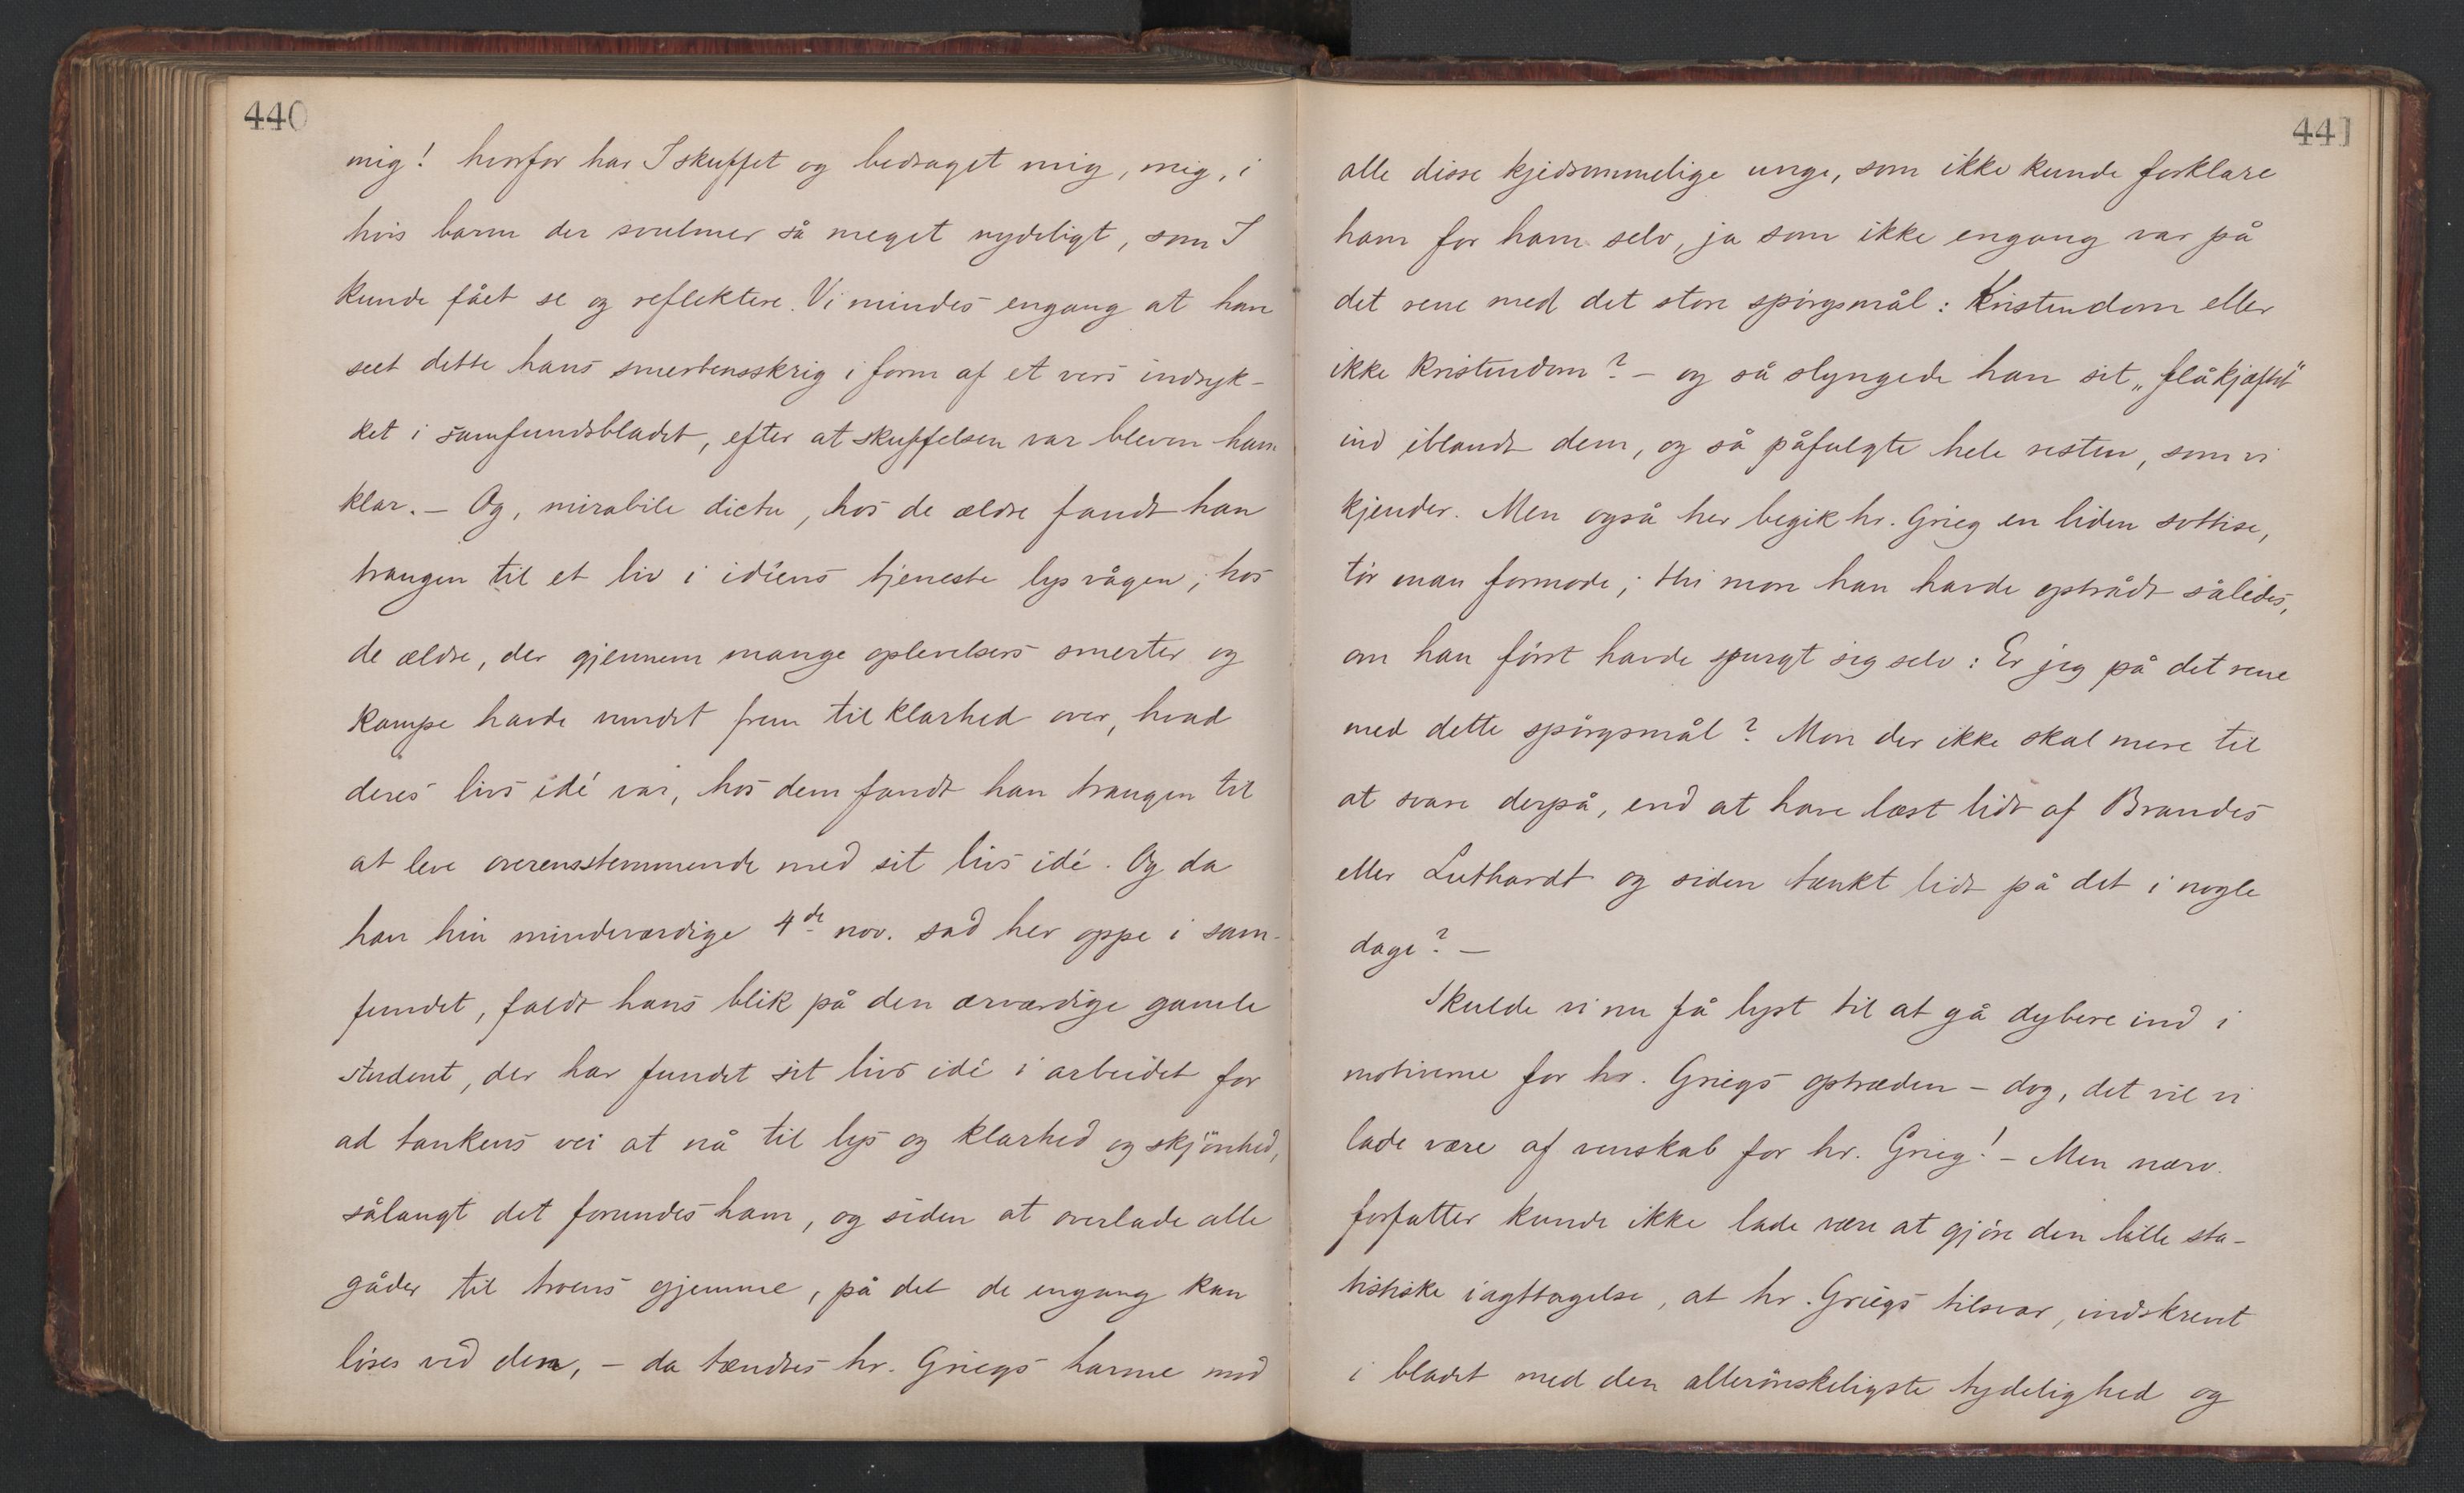 440
mig! hvorfor har I skuffet og bedraget mig, mig, i
hvis barm der svulmer så meget nydeligt, som I
kunde fået se og reflektere. Vi mindes engang at have
seet dette hans smertensskrig i form af et vers indryk-
ket i samfundsbladet, efter at skuffelsen var bleven ham
klar. – Og, mirabile dictu, hos de ældre fandt han
trangen til et liv i idéens tjeneste lys vågen; hos
de ældre, der gjennem mange oplevelsers smerter og
kampe havde vundet frem til klarhed over, hvad
deres livs idé var, hos dem fandt han trangen til
at leve overensstemmende med sit livs idé. Og da
han hin mindeværdige 4de nov. sad her oppe i sam-
fundet, faldt hans blik på den ærværdige gamle
student, der har fundet sit livs idé i arbeidet for
ad tankens vei at nå til lys og klarhed og skjönhed,
sålangt det forundes ham, og siden at overlade alle
gåder til troens gjemme, på det de engang kan
löses ved den, – da tændtes hr. Griegs harme mod
441
alle disse kjedsommelige unge, som ikke kunde forklare
ham for ham selv, ja som ikke engang var på
det rene med det store spörgsmål: Kristendom eller
ikke kristendom? – og så slyngede han sit „flåkjæftet"
ind iblandt dem, og så påfulgte hele resten, som vi
kjender. Men også her begik hr. Grieg en liden sottise,
tör man formode; thi mon han havde optrådt således,
om han först havde spurgt sig selv: Er jeg på det rene
med dette spörgsmål? Mon der ikke skal mere til
at svare derpå, end at have læst lidt af Brandes
eller Luthardt og siden tænkt lidt på det i nogle
dage? –
Skulde vi nu få lyst til at gå dybere ind i
motiverne for hr. Griegs optræden – dog, det vil vi
lade være af venskab for hr. Grieg! – Men nærv.
forfatter kunde ikke lade være at gjöre den lille sta-
tistiske iagttagelse, at hr. Griegs tilsvar, indskrevet
i bladet med den allerönskeligste tydelighed og